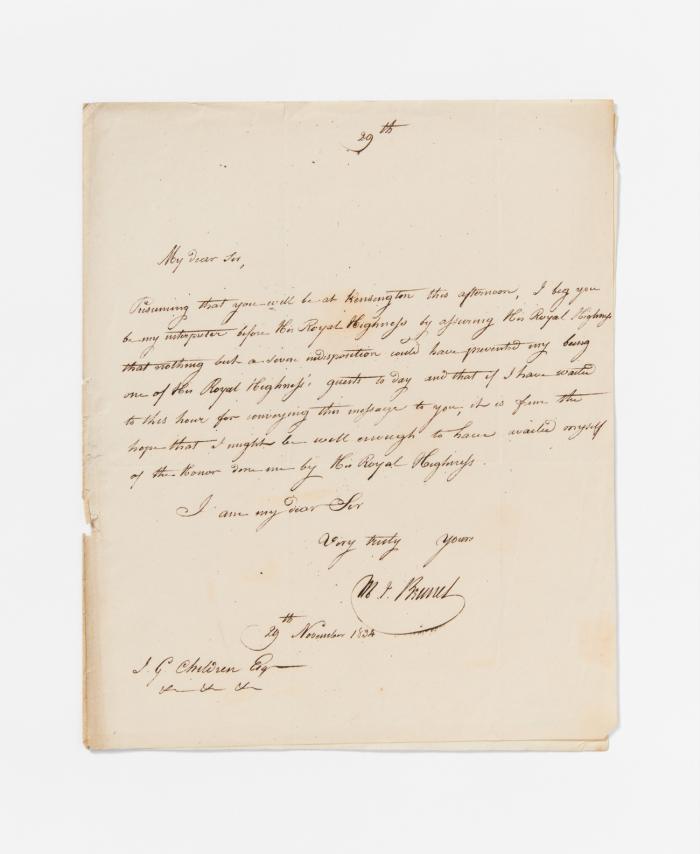 29th
My dear Sir,
Presuming that you will be at Kensington this afternoon, I beg you
be my interpreter before His Royal Highness by assuring His Royal Highness
that nothing but a severe indisposition could have prevented my being
one of His Royal Highness' guests to day and that if I have waited
to this hour for conveying this message to you, it is from the
hope that I might be well enough to have availed myself
of the Honor done me by His Royal Highness.
I am my dear Sir
Very truly Yours
M. I. Brunel
29th November 1834
J. G Children Esqr
&c &c &c